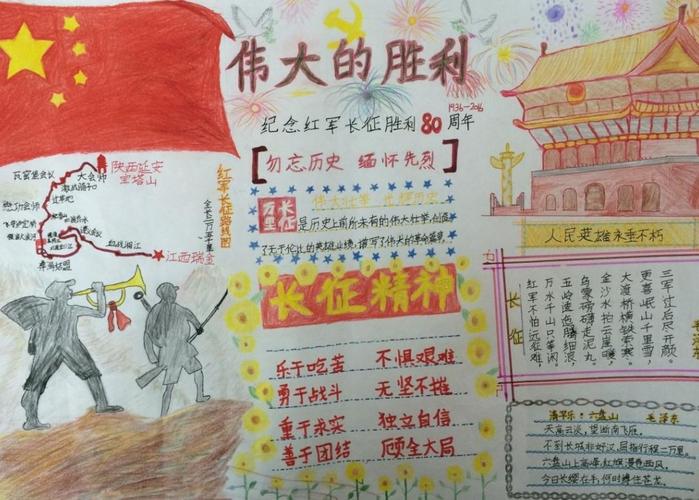 伟大的胜利
1936-2016
纪念红军长征胜利80周年
[勿忘历史 缅怀先烈]
伟大壮举 光辉历史
万里长征
是历史上前所未有的伟大壮举,创造
了无于伦比的英雄业绩,谱写了伟大的革命篇章
陕西延安
宝塔山
瓦窑堡会议
大会师
激战腊子口
过草地
懋功会师
飞夺泸定桥
强渡大渡河
遵义会议
血战湘江
江西瑞金
彝海结盟
红军长征路线图
全长二万五千里
长征精神
乐于吃苦 不惧艰难
勇于战斗 无坚不摧
重于求实 独立自信
善于团结 顾全大局
人民英雄永垂不朽
长征
红军不怕远征难,
万水千山只等闲。
五岭逶迤腾细浪,
乌蒙磅礴走泥丸。
金沙水拍云崖暖,
大渡桥横铁索寒。
更喜岷山千里雪,
三军过后尽开颜。
清平乐·六盘山 毛泽东
天高云淡,望断南飞雁。
不到长城非好汉,屈指行程二万里。
六盘山上高峰,红旗漫卷西风。
今日长缨在手,何时缚住苍龙